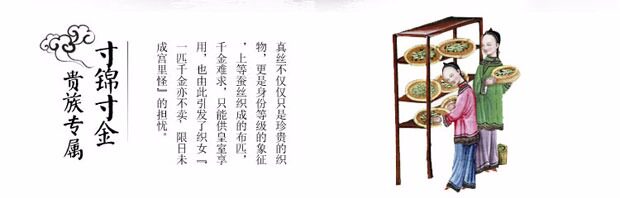 寸锦寸金
贵族专属
真丝不仅仅只是珍贵的织
物，更是身份等级的象征
，上等蚕丝织成的布匹，
千金难求，只能供皇室享
用，也由此引发了织女『
一匹千金亦不卖 限日未
成宫里怪』的担忧。